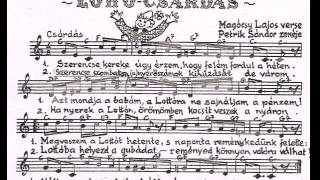 ~ LOTTÓ-CSÁRDÁS ~
Csárdás
Magócsy Lajos verse
Petrik Sándor zenéje
1. Szerencse kereke úgy érzem, hogy felém fordul a héten.
2. Szerencse szombaton (a)nyerőszámok kihúzását de várom.
1. Azt mondja a babám, a Lottóra ne sajnáljam a pénzem!
2. Ha nyerek a Lottón, örömömben kocsit veszek a nyáron.
1. Megveszem a Lottót hetente, s naponta reménykedünk felette:
2. Lottóba helyezd a gubádat, – reményed könnyen valóra válhat